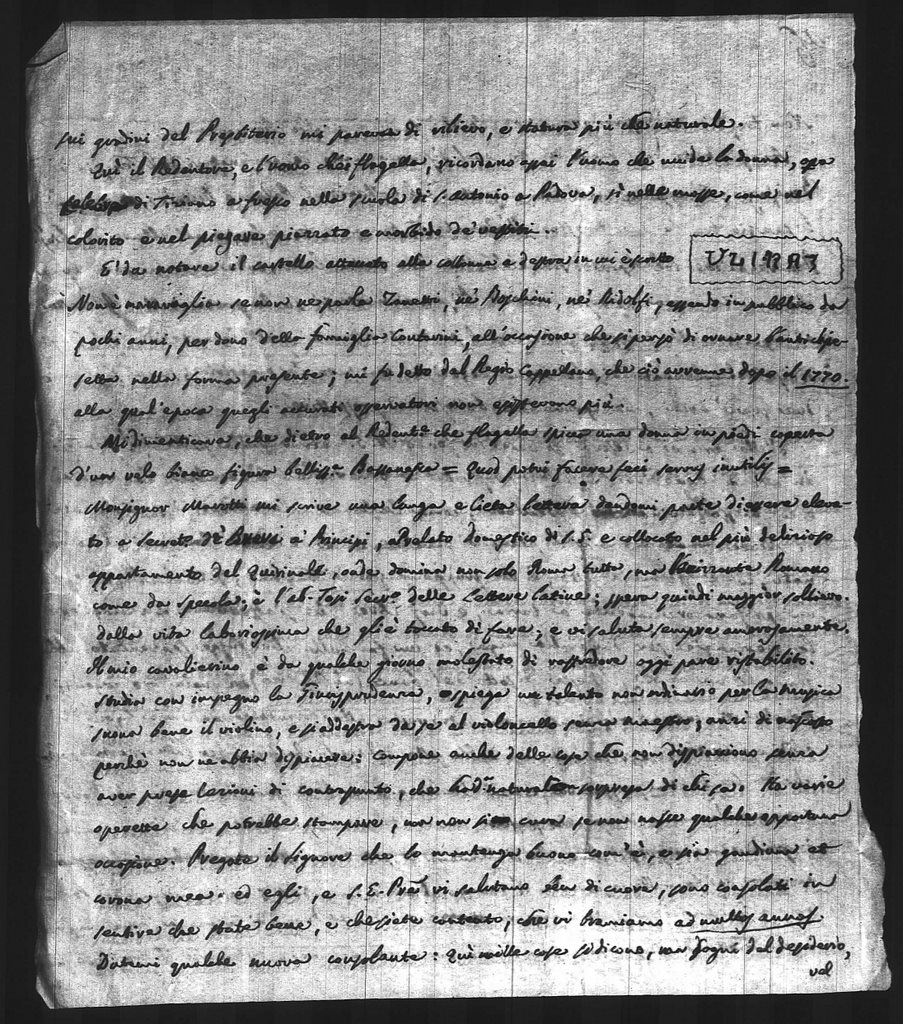 sui gradini del Presbiterio mi pareva di rilievo, e statura più che naturale.
Qui il Redentore, e l'uomo che flagella, ricordano assai l'uomo che uccide la donna, opa
di Tiziano a fresco nella scuola di S. Antonio a Padova, sì nelle mosse, come nel
colorito e nel piegare piazzato e morbido de' vestiti..
E' da notare il cartello attaccato alla colonna e destra in cui è scritto
Non è maraviglia se non ne parla Zanetti, nè Boschini, nè Ridolfi, essendo in pubblico da
pochi anni, per dono della famiglia Contarini, all'occasione che si pensò di ornare l'antichis-
setta nella forma presente; mi fu detto dal Regio Cappellano, che ciò avvenne dopo il 1770.
alla qual'epoca quegli accurati osservatori non esistevano più.
Mi dimenticava, che dietro al Redentre che flagella spicca una donna in piedi coperta
d'un velo bianco figura bellissa Bassanesca = quod potui facere feci servus inutilis =
Monsignor Marotti mi scrive una lunga e lieta lettera dandomi parte d'essere eleva-
to a Secreto de' Brevi a' Principi, a Prelato domestico di S.S. e collocato nel più delizioso
appartamento del Quirinale, onde domina non solo Roma tutta, ma l'orizzonte Romano
come da specola; è l'ab. Tosi Secro delle Lettere latine; spera quindi maggior sollievo
dalla vita laboriosissima che gli è toccato di fare, e vi saluta sempre amorosamente.
Il mio cavalierino è da qualche giorno molestato di raffredore oggi pare ristabilito.
Studia con impegno la Giurisprudenza, e spiega un talento non ordinario per la musica
suona bene il violino, e si addestra da se al violoncello senza maestro, anzi di nascosto
perchè non ne abbia dispiacere: compone anche delle cose che non dispiacciono senza
aver prese lezioni di contrapunto, che naturale sorpresa di chi sa. Ha varie
operette che potrebbe stampare, ma non si cura se non nasce qualche opportuna
occasione. Pregate il Signore che lo mantenga buono com'è, e sia gaudium et
corona mea. ed egli, e S.E. Pre vi salutano ben di cuore, sono consolati in
sentire che state bene, e che siete contento, che vi bramiamo ad multos annos
Datemi qualche nuova consolante: Qui mille cose si dicono, ma sogni del desiderio,
vel